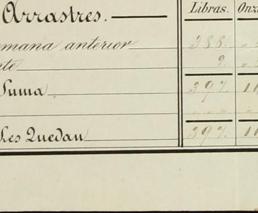 Arrastres. Libras. Onz
emana anterior 388
Suma 397 10
Les Quedan 397 10